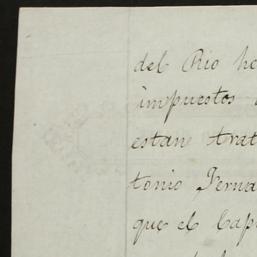 del Rio he
impuestos
estan trat
tonio Ferna
que el Cap